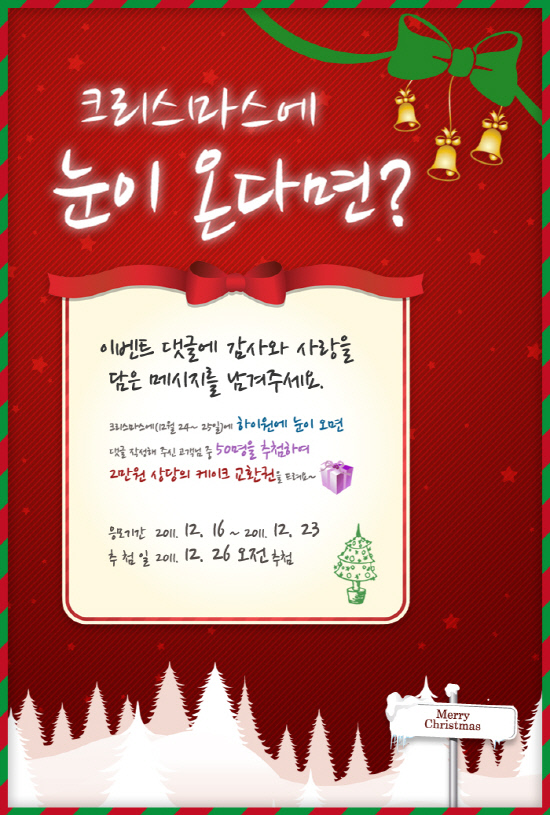 크리스마스에
눈이 온다면?
이벤트 댓글에 감사와 사랑을
담은 메시지를 남겨주세요.
크리스마스에(12월 24~ 25일)에 하이원에 눈이 오면
댓글 작성해 주신 고객님 중 50명을 추첨하여
2만원 상당의 케이크 교환권을 드려요~
응모기간 2011. 12. 16 ~ 2011. 12. 23
추 첨 일 2011. 12. 26 오전 추첨
Merry
Christmas